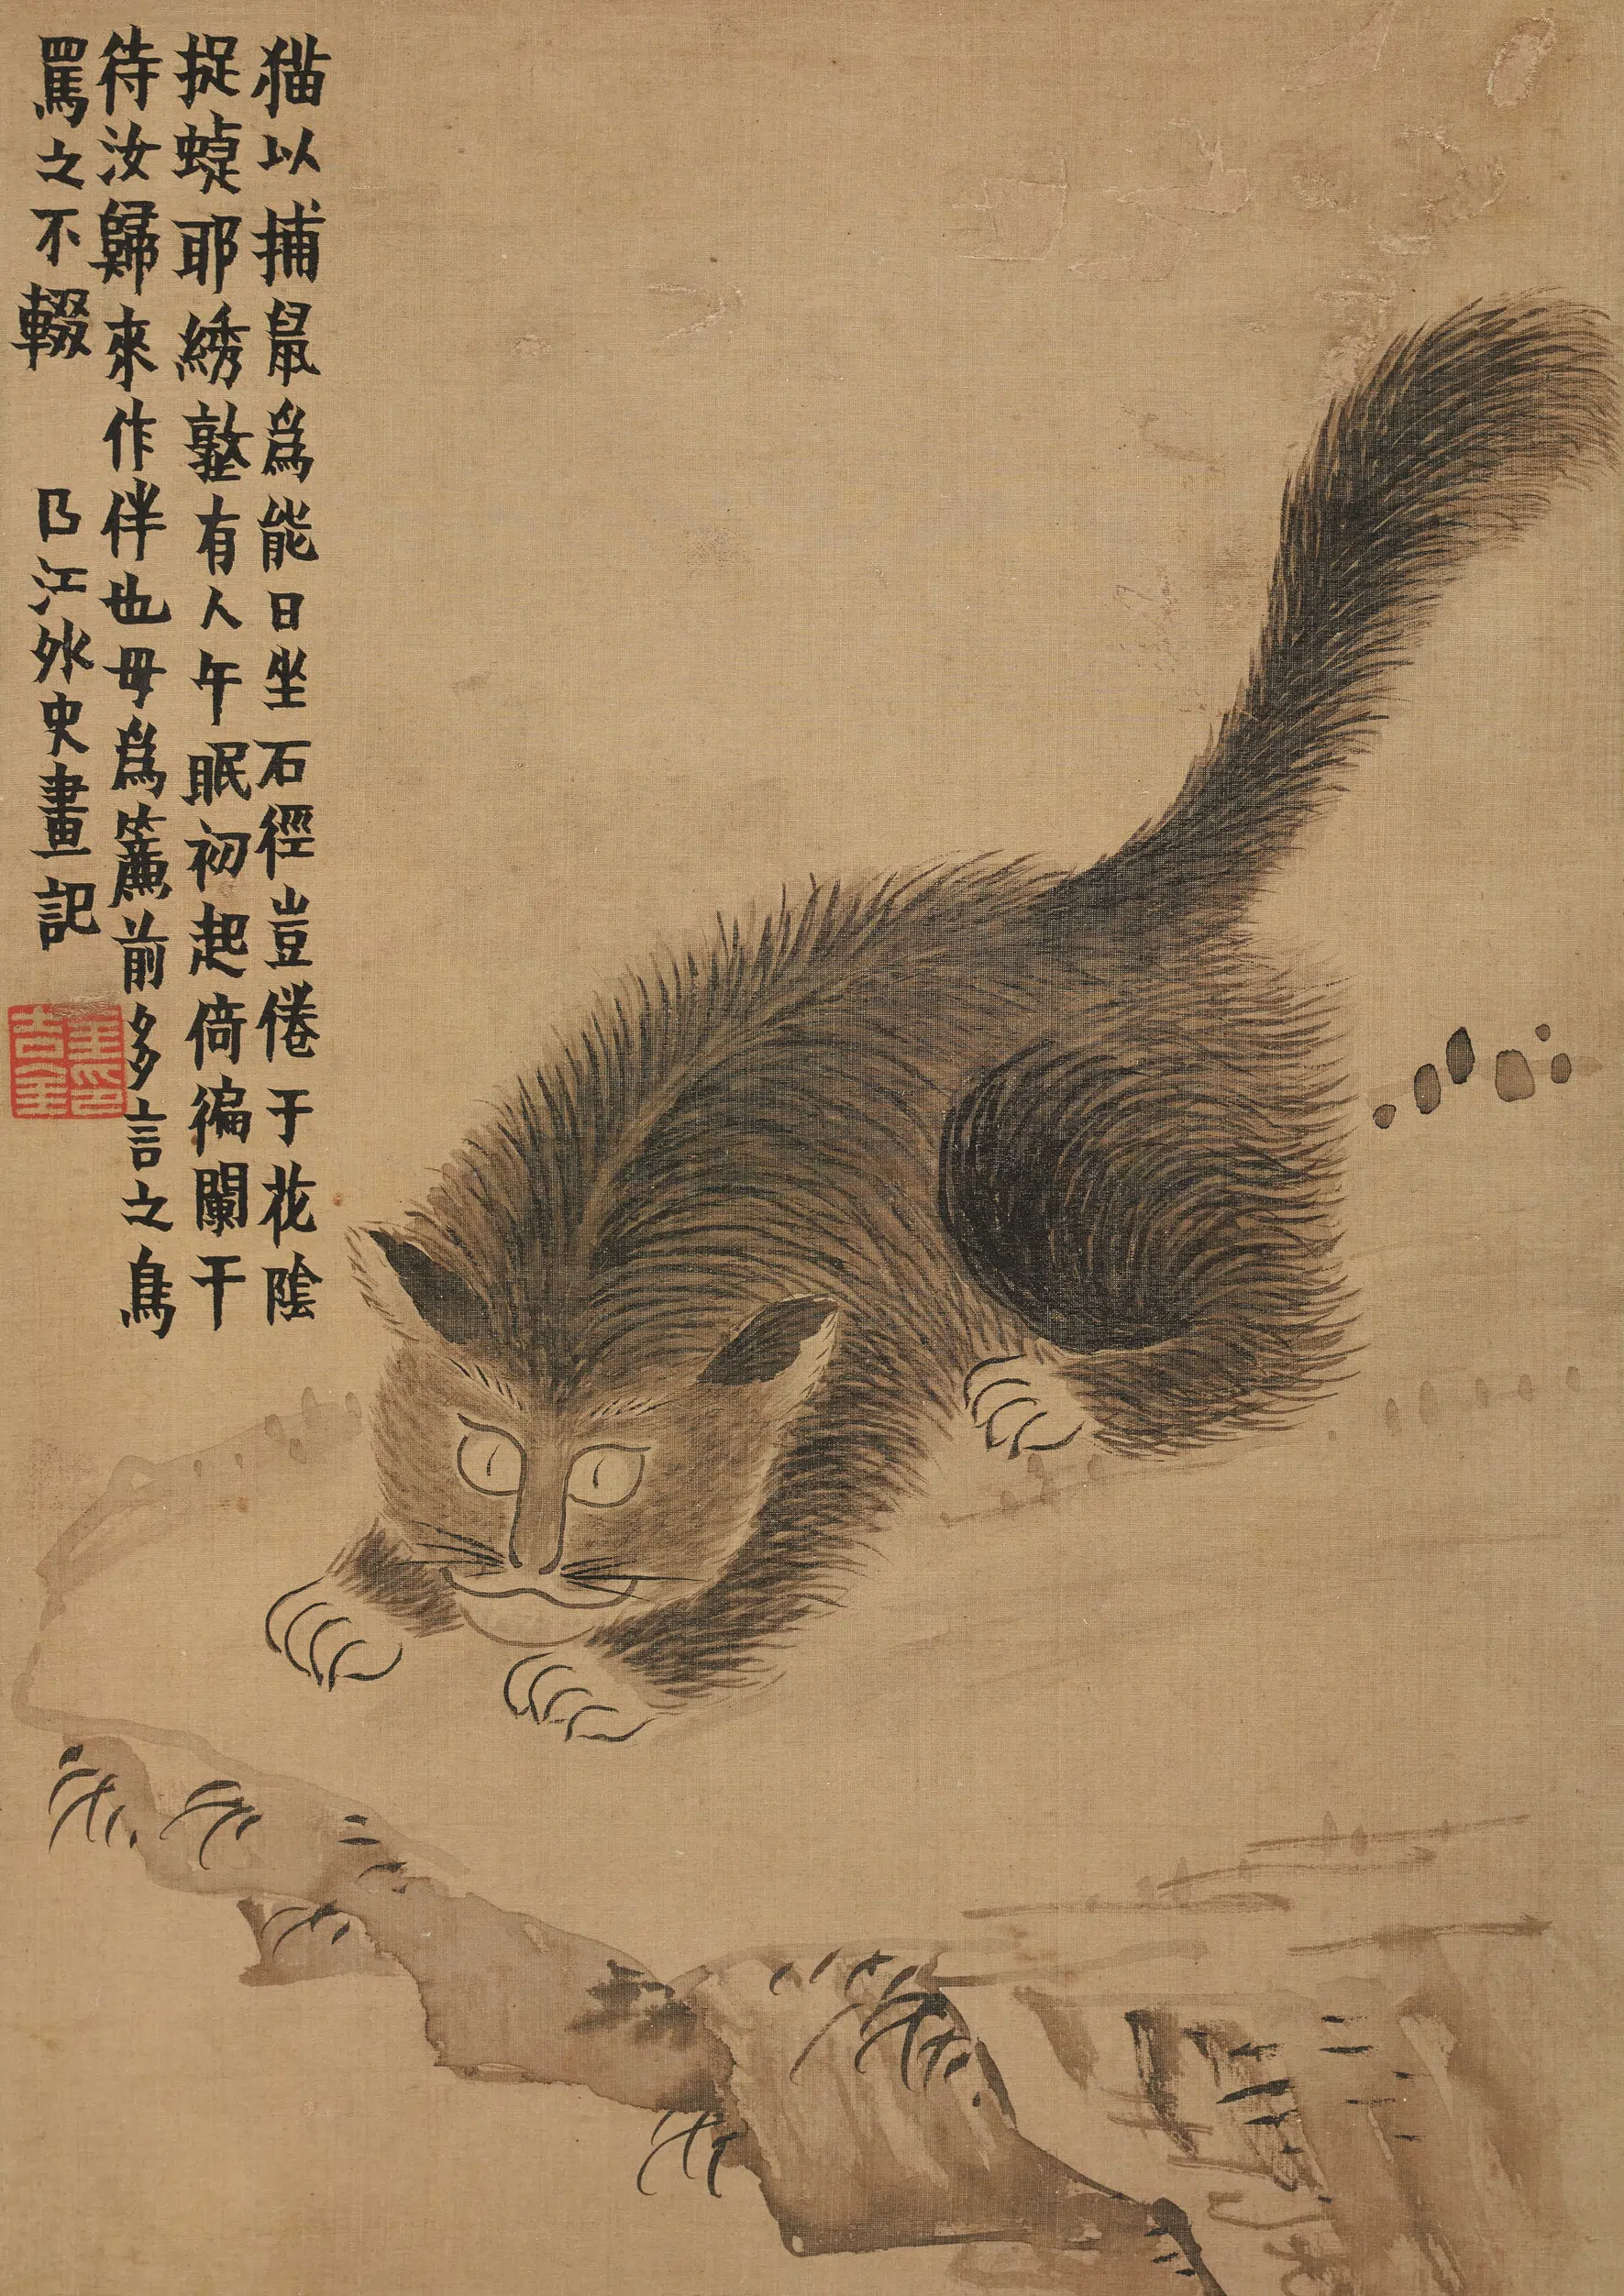 猫以捕鼠為能日坐石徑豈倦于花陰
捉蜨耶綉墪有人午眠初起倚徧闌干
待汝歸來作伴也毋為簾前多言之鳥
罵之不輟 曲江外史畫記
金印吉金